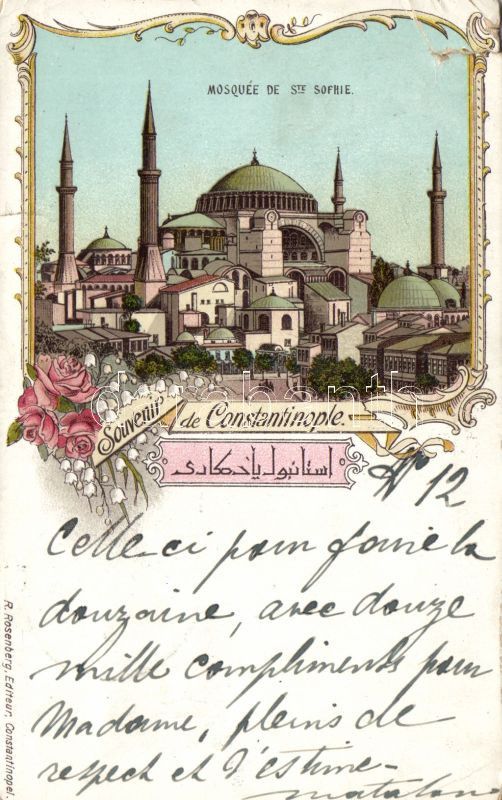 MOSQUÉE DE STE SOFHIE.
Souvenir de Constantinople.
استانبول ياد
No 12
Celle-ci pour faire la
douzaine, avec douze
mille compliments pour
Madame, pleins de
respect et d'estime-
matalon
R. Rosenberg, Editeur, Constantinopel.
darabanth